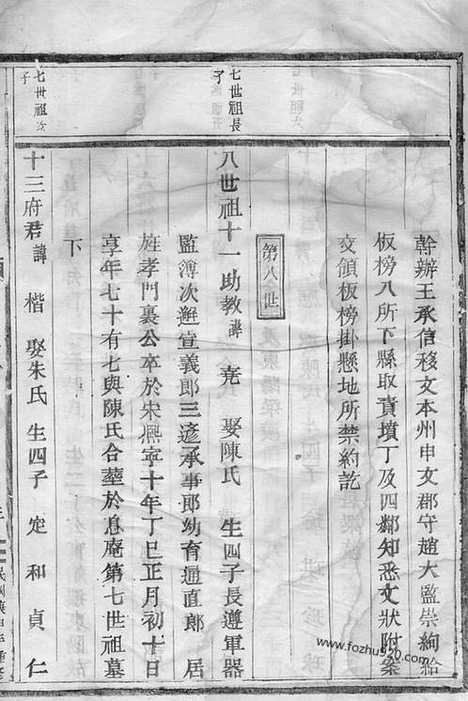 幹辦王承信移文本州申文郡守趙大監崇絢給
板榜八所下縣取責墳丁及四鄰知悉文狀附案
交領板榜掛懸地所禁約訖
第八世
七世祖長子
八世祖十一助教諱 堯 娶陳氏 生四子長遵軍器
監簿次邂宣義郎三遮承事郎幼育通直郎 居
旌孝門裏公卒於宋熙寧十年丁巳正月初十日
享年七十有七與陳氏合塟於息庵第七世祖墓
下
七世祖次子
十三府君諱 楷 娶朱氏 生四子 定 和 貞 仁
www.fozhu920.com